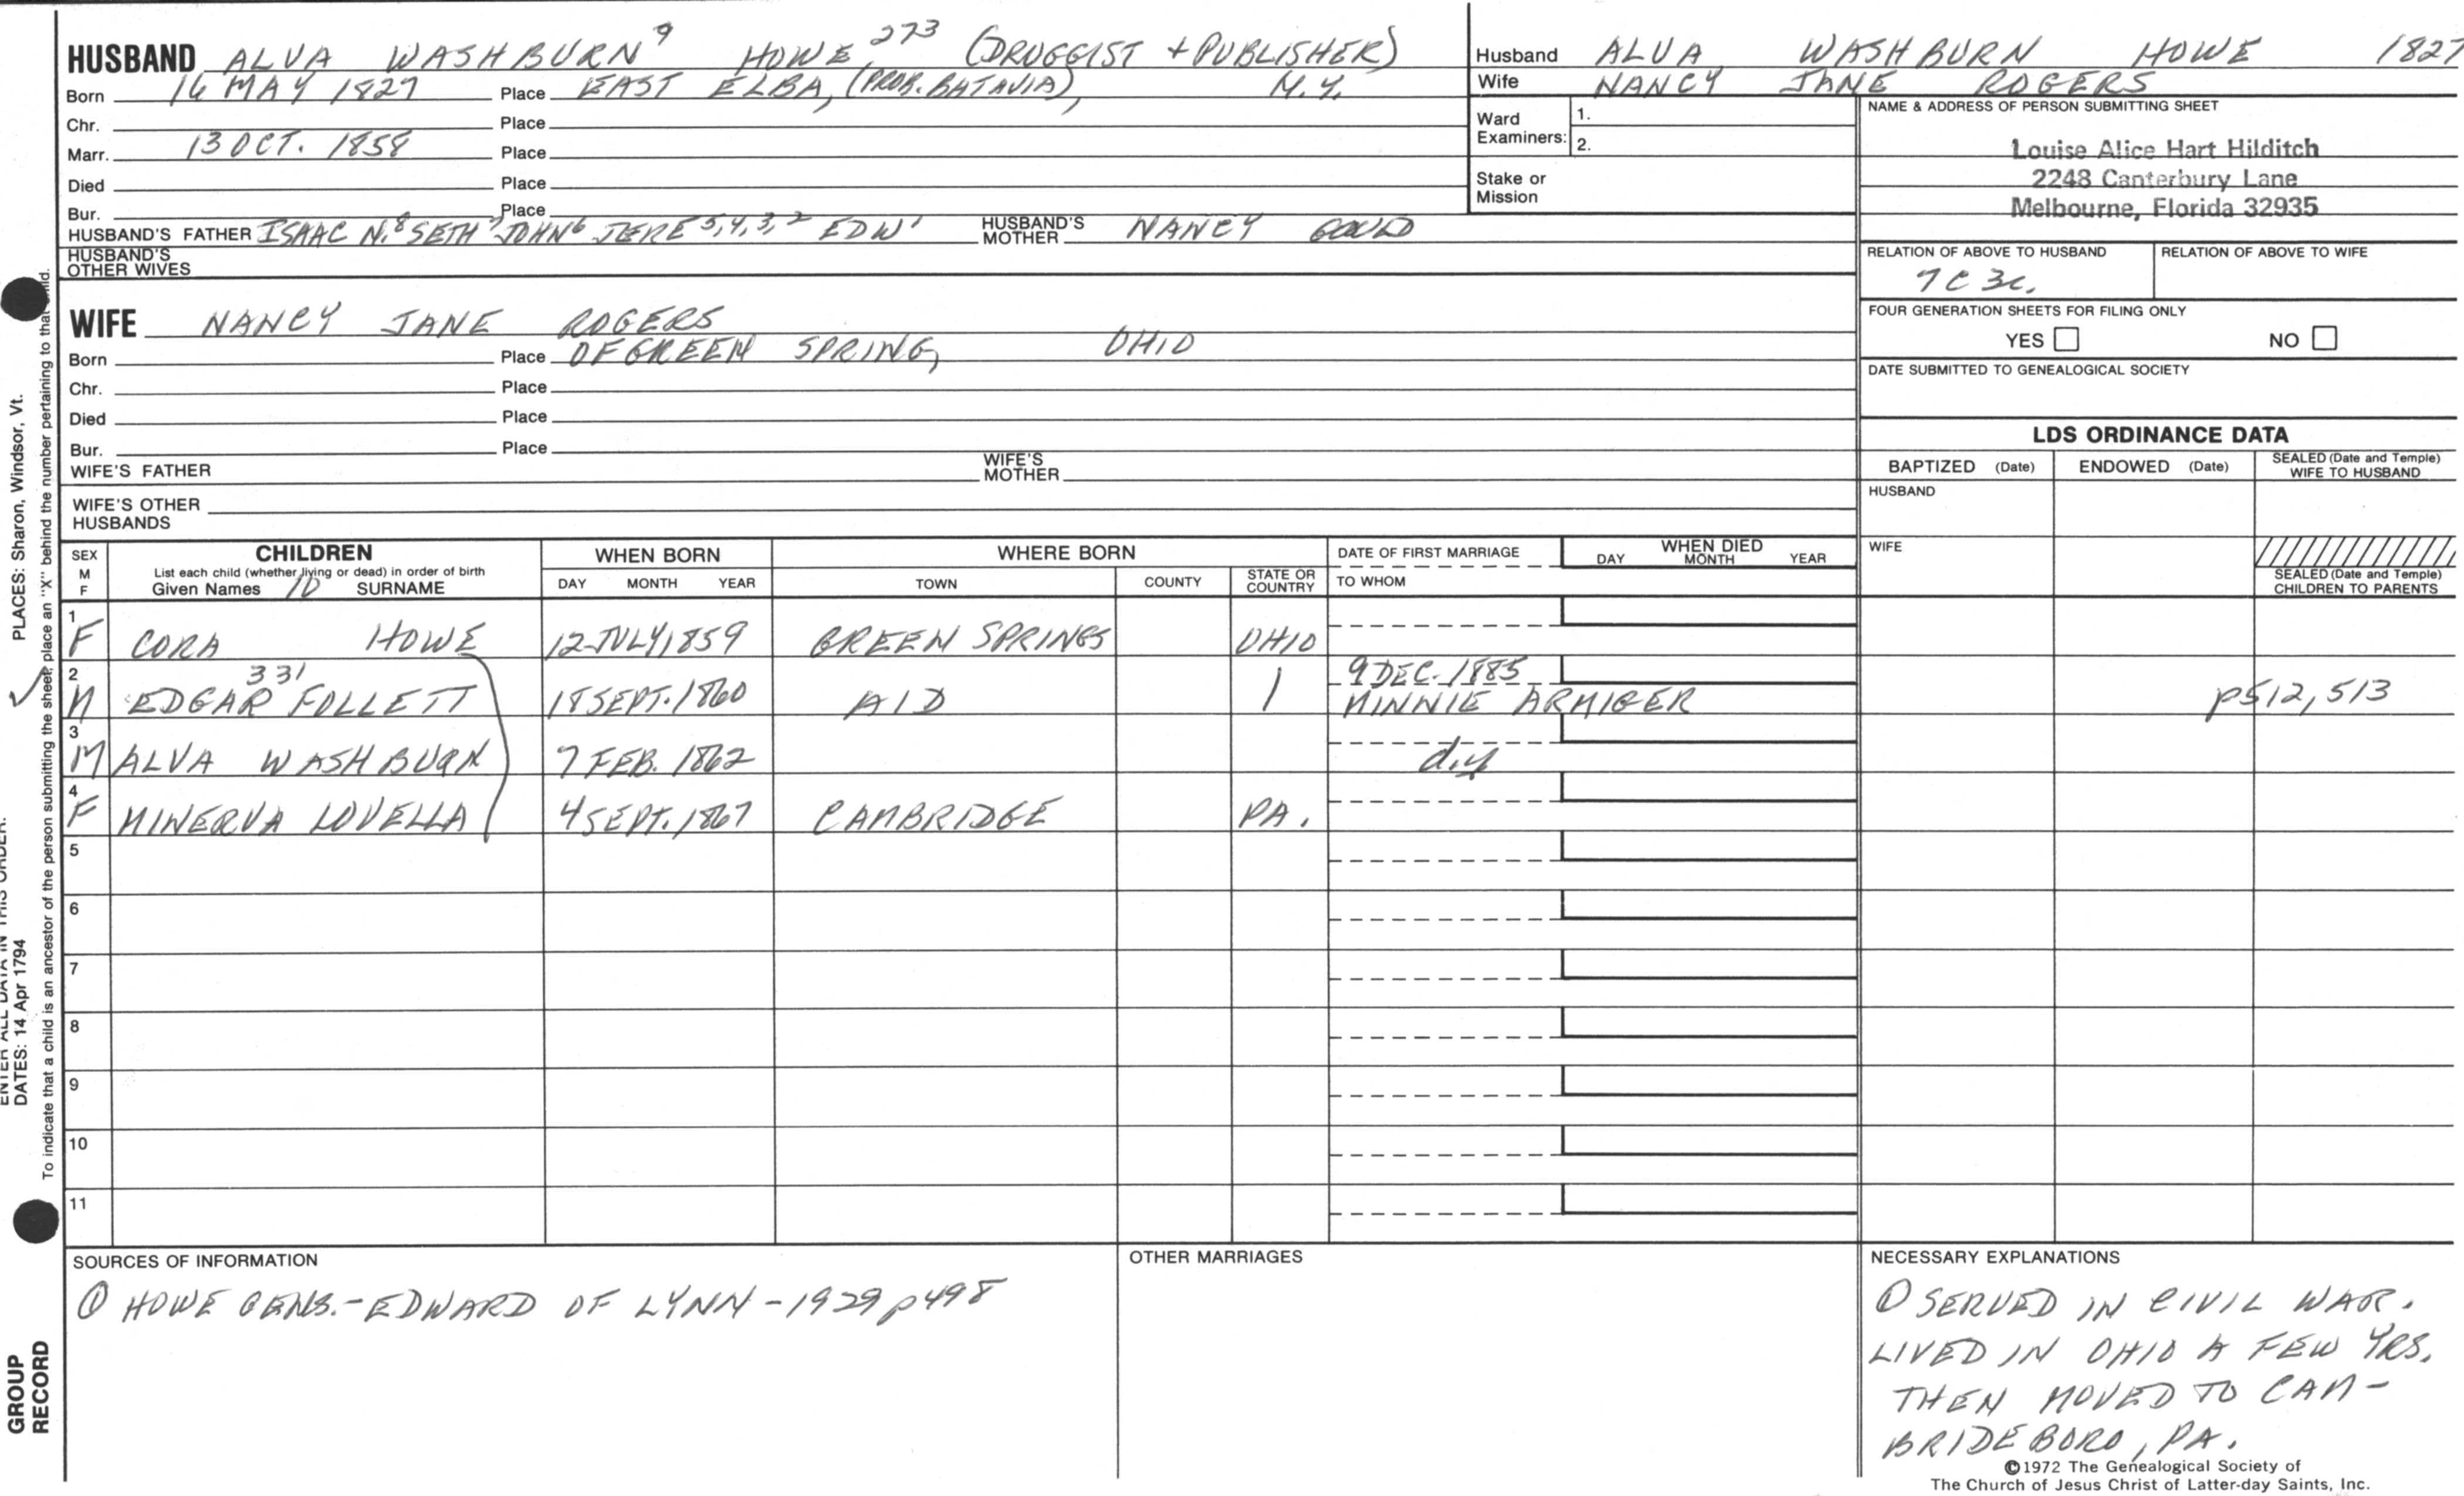 HUSBAND ALVA WASHBURN 9 HOWE, 273 (DRUGGIST + PUBLISHER)
Born 16 MAY 1827 Place EAST ELBA, (PROB. BATAVIA), N.Y.
Chr. Place
Marr. 13 OCT. 1858 Place
Died Place
Bur. Place
HUSBAND'S FATHER ISAAC N.8 SETH7 JOHN6 JERE5,4,3,2 EDW1 HUSBAND'S MOTHER NANCY GOULD
HUSBAND'S OTHER WIVES
WIFE NANCY JANE ROGERS
Born Place OF GREEN SPRING, OHIO
Chr. Place
Died Place
Bur. Place
WIFE'S FATHER WIFE'S MOTHER
WIFE'S OTHER HUSBANDS
Husband ALVA WASHBURN HOWE 1827
Wife NANCY JANE ROGERS
Ward Examiners: 1.
2.
Stake or Mission
NAME & ADDRESS OF PERSON SUBMITTING SHEET
Louise Alice Hart Hilditch
2248 Canterbury Lane
Melbourne, Florida 32935
RELATION OF ABOVE TO HUSBAND RELATION OF ABOVE TO WIFE
7C 3r.
FOUR GENERATION SHEETS FOR FILING ONLY
YES NO
DATE SUBMITTED TO GENEALOGICAL SOCIETY
LDS ORDINANCE DATA
BAPTIZED (Date) ENDOWED (Date) SEALED (Date and Temple) WIFE TO HUSBAND
HUSBAND
WIFE
SEALED (Date and Temple) CHILDREN TO PARENTS
SEX M F
CHILDREN
List each child (whether living or dead) in order of birth
Given Names 10 SURNAME
WHEN BORN
DAY MONTH YEAR
WHERE BORN
TOWN COUNTY STATE OR COUNTRY
DATE OF FIRST MARRIAGE
TO WHOM
WHEN DIED
DAY MONTH YEAR
1 F CORA HOWE 12 JULY 1859 GREEN SPRINGS OHIO
2 M EDGAR 331 FOLLETT 18 SEPT. 1860 AID 9 DEC. 1885 MINNIE ARMIGER p512,513
3 M ALVA WASHBURN 7 FEB. 1862 d.y
4 F MINERVA LOVELLA 4 SEPT. 1867 CAMBRIDGE PA.
5
6
7
8
9
10
11
SOURCES OF INFORMATION
① HOWE GENS.-EDWARD OF LYNN-1929 p498
OTHER MARRIAGES
NECESSARY EXPLANATIONS
① SERVED IN CIVIL WAR.
LIVED IN OHIO A FEW YRS.
THEN MOVED TO CAM-
BRIDEBORO, PA.
©1972 The Genealogical Society of
The Church of Jesus Christ of Latter-day Saints, Inc.
PLACES: Sharon, Windsor, Vt.
ENTER ALL DATA IN THIS ORDER:
DATES: 14 Apr 1794
To indicate that a child is an ancestor of the person submitting the sheet, place an "X" behind the number pertaining to that child.
GROUP
RECORD